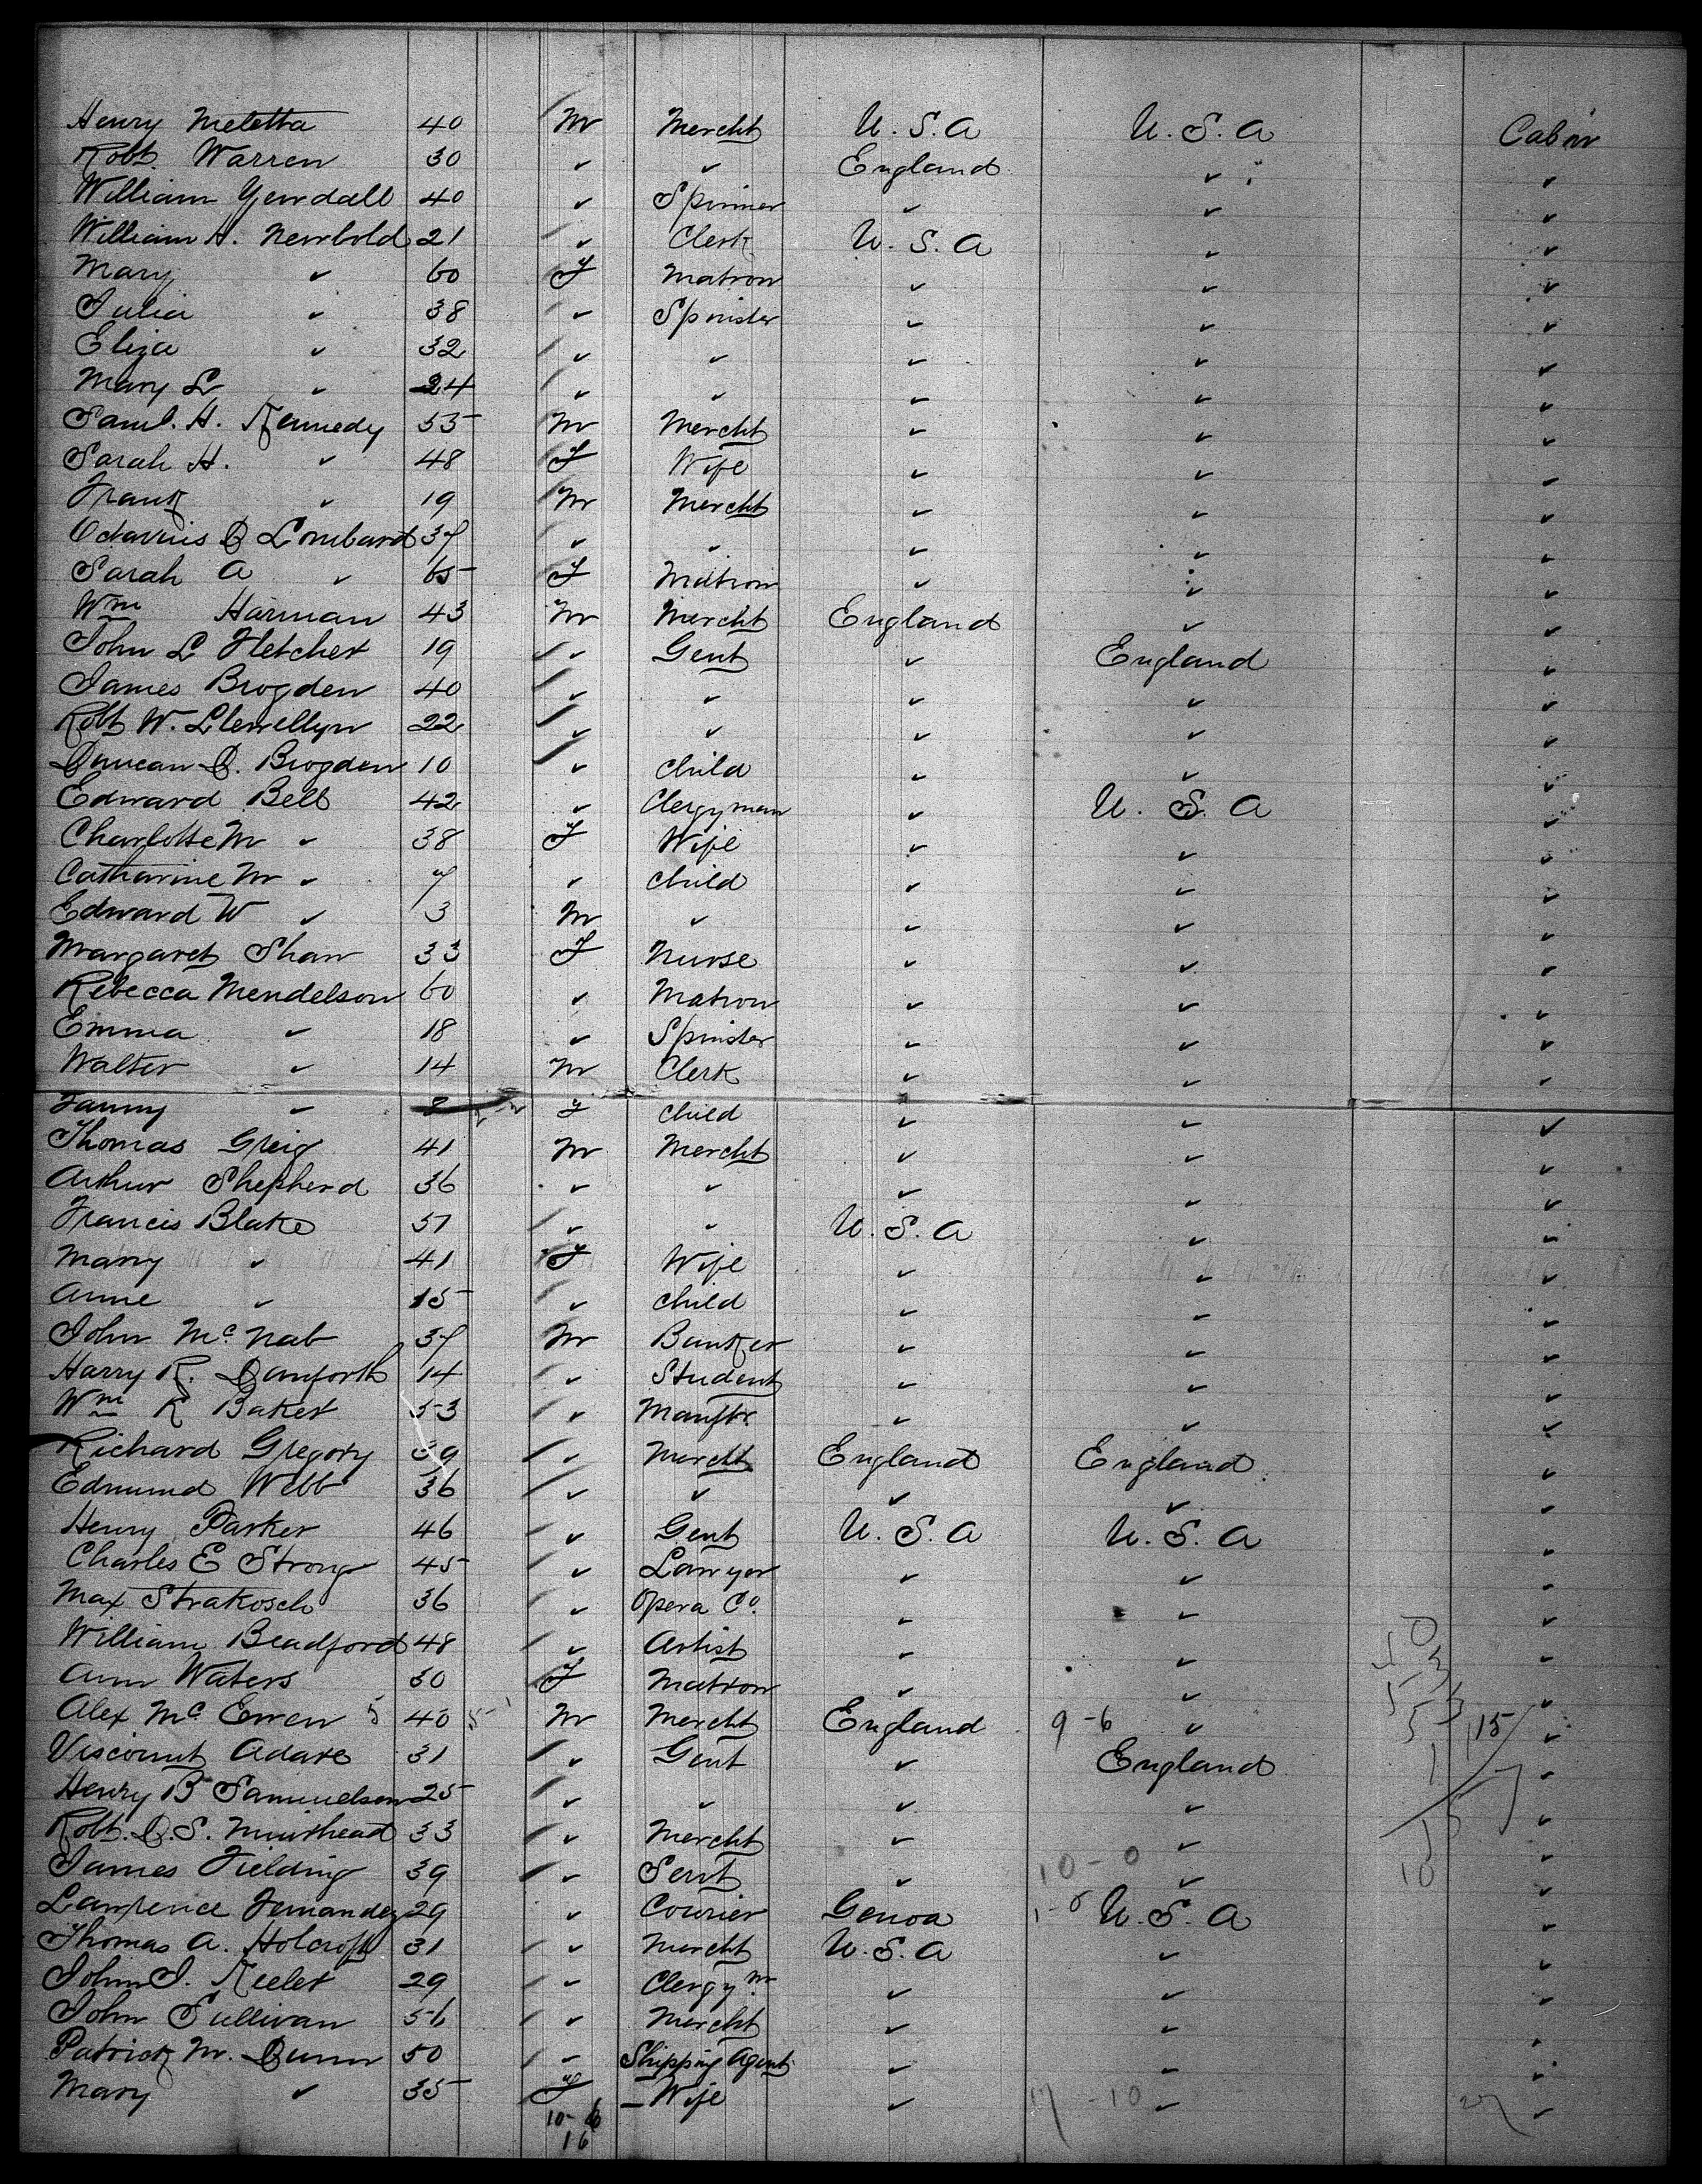 Henry Meletta 40 M Mercht U.S.A U.S.A Cabin
Robt Warren 30 ✓ ✓ England ✓ ✓
William Yewdall 40 ✓ Spinner ✓ ✓ ✓
William H. Newbold 21 ✓ Clerk U.S.A ✓ ✓
Mary ✓ 60 F Matron ✓ ✓ ✓
Julia ✓ 38 ✓ Spinster ✓ ✓ ✓
Eliza ✓ 32 ✓ ✓ ✓ ✓ ✓
Mary L ✓ 24 ✓ ✓ ✓ ✓ ✓
Saml. H. Kennedy 55 M Mercht ✓ ✓ ✓
Sarah H. ✓ 48 F Wife ✓ ✓ ✓
Frank ✓ 19 M Mercht ✓ ✓ ✓
Octavius D Lombard 37 ✓ ✓ ✓ ✓ ✓
Sarah A ✓ 65 F Matron ✓ ✓ ✓
Wm Harman 43 M Mercht England ✓ ✓
John L Fletcher 19 ✓ Gent ✓ England ✓
James Brogden 40 ✓ ✓ ✓ ✓ ✓
Robt W. Llewellyn 22 ✓ ✓ ✓ ✓ ✓
Duncan D. Brogden 10 ✓ Child ✓ ✓ ✓
Edward Bell 42 ✓ Clergyman ✓ U.S.A ✓
Charlotte M ✓ 38 F Wife ✓ ✓ ✓
Catharine M ✓ 7 ✓ Child ✓ ✓ ✓
Edward W ✓ 3 M ✓ ✓ ✓ ✓
Margaret Shaw 33 F Nurse ✓ ✓ ✓
Rebecca Mendelson 60 ✓ Matron ✓ ✓ ✓
Emma ✓ 18 ✓ Spinster ✓ ✓ ✓
Walter ✓ 14 M Clerk ✓ ✓ ✓
Fanny ✓ 8 F Child ✓ ✓ ✓
Thomas Greig 41 M Mercht ✓ ✓ ✓
Arthur Shepherd 36 ✓ ✓ ✓ ✓ ✓
Francis Blake 51 ✓ ✓ U.S.A ✓ ✓
Mary ✓ 41 F Wife ✓ ✓ ✓
Anne ✓ 15 ✓ Child ✓ ✓ ✓
John Mc Nab 37 M Banker ✓ ✓ ✓
Harry R. Danforth 14 ✓ Student ✓ ✓ ✓
Wm R Baker 53 ✓ Manftr. ✓ ✓ ✓
Richard Gregory 39 ✓ Mercht England England ✓
Edmund Webb 36 ✓ ✓ ✓ ✓ ✓
Henry Parker 46 ✓ Gent U.S.A U.S.A ✓
Charles E Strong 45 ✓ Lawyer ✓ ✓ ✓
Max Strakosch 36 ✓ Opera Co. ✓ ✓ ✓
William Bradford 48 ✓ Artist ✓ ✓ ✓
Ann Waters 30 F Matron ✓ ✓ ✓
Alex Mc Ewen 5 40 5 M Mercht England 9-6 ✓ 15 ✓
Viscount Adare 31 ✓ Gent ✓ England ✓
Henry B Samuelson 25 ✓ ✓ ✓ ✓ ✓
Robt. D.S. Muirhead 33 ✓ Mercht ✓ ✓ ✓
James Fielding 39 ✓ Sert ✓ 10-0 ✓ 10 ✓
Lawrence Fernandez 29 ✓ Courier Genoa U.S.A ✓
Thomas A. Holcroft 31 ✓ Mercht U.S.A ✓ ✓
John J. Keeler 29 ✓ Clergym. ✓ ✓ ✓
John Sullivan 56 ✓ Mercht ✓ ✓ ✓
Patrick M. Dunn 50 ✓ Shipping Agent ✓ ✓ ✓
Mary ✓ 35 F Wife ✓ 17-10 ✓ ✓
10-6
16